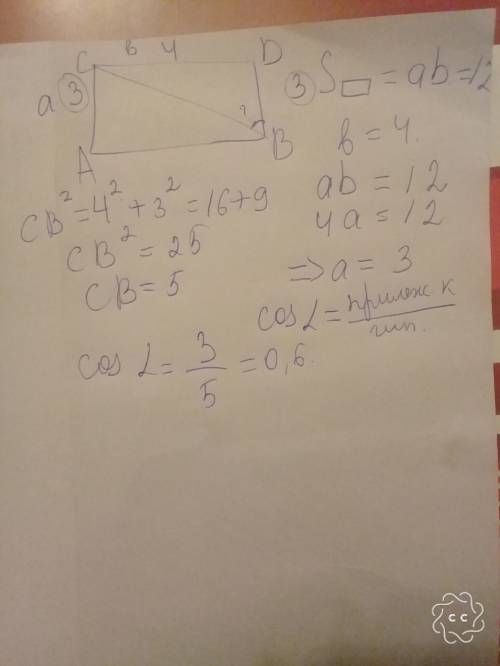 C в 4 D
a 3
? 
A B
3 S▭ = ab = 12
в = 4.
ab = 12
4a = 12
=> a = 3
cos L = прилеж к / гип.
CB² = 4² + 3² = 16 + 9
CB² = 25
CB = 5
cos L = 3/5 = 0,6.
cc